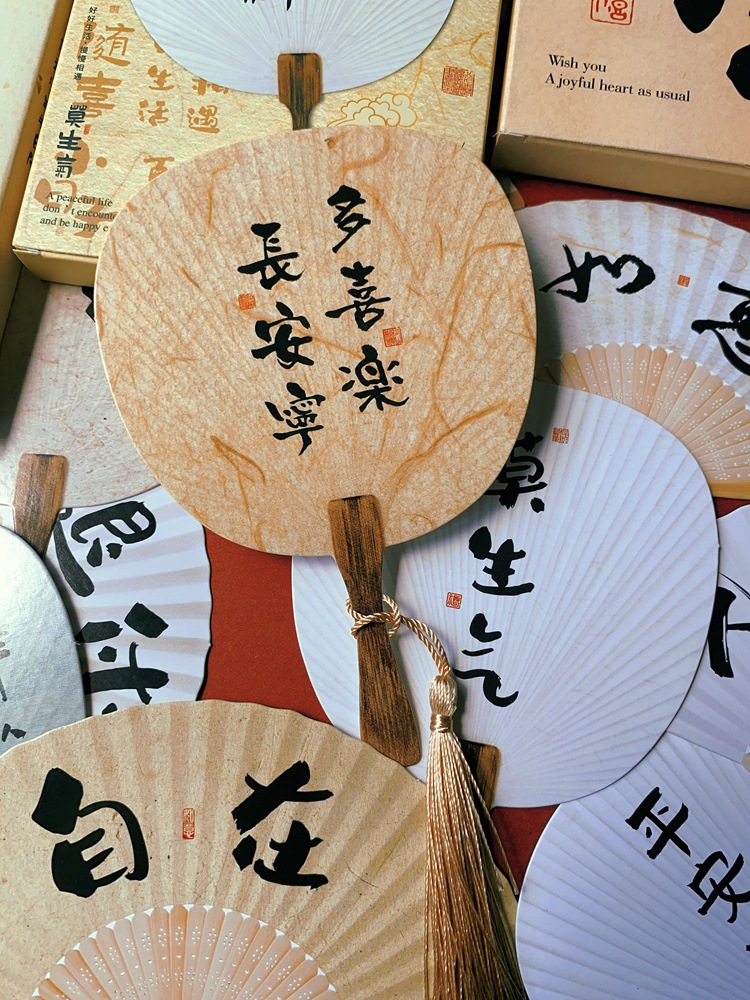 好好生活 慢慢相遇
随喜
生活
相遇
莫生氣
A peaceful life
don't encount
and be happy e
Wish you
A joyful heart as usual
多喜楽
長安寧
如
莫生气
自在
平安